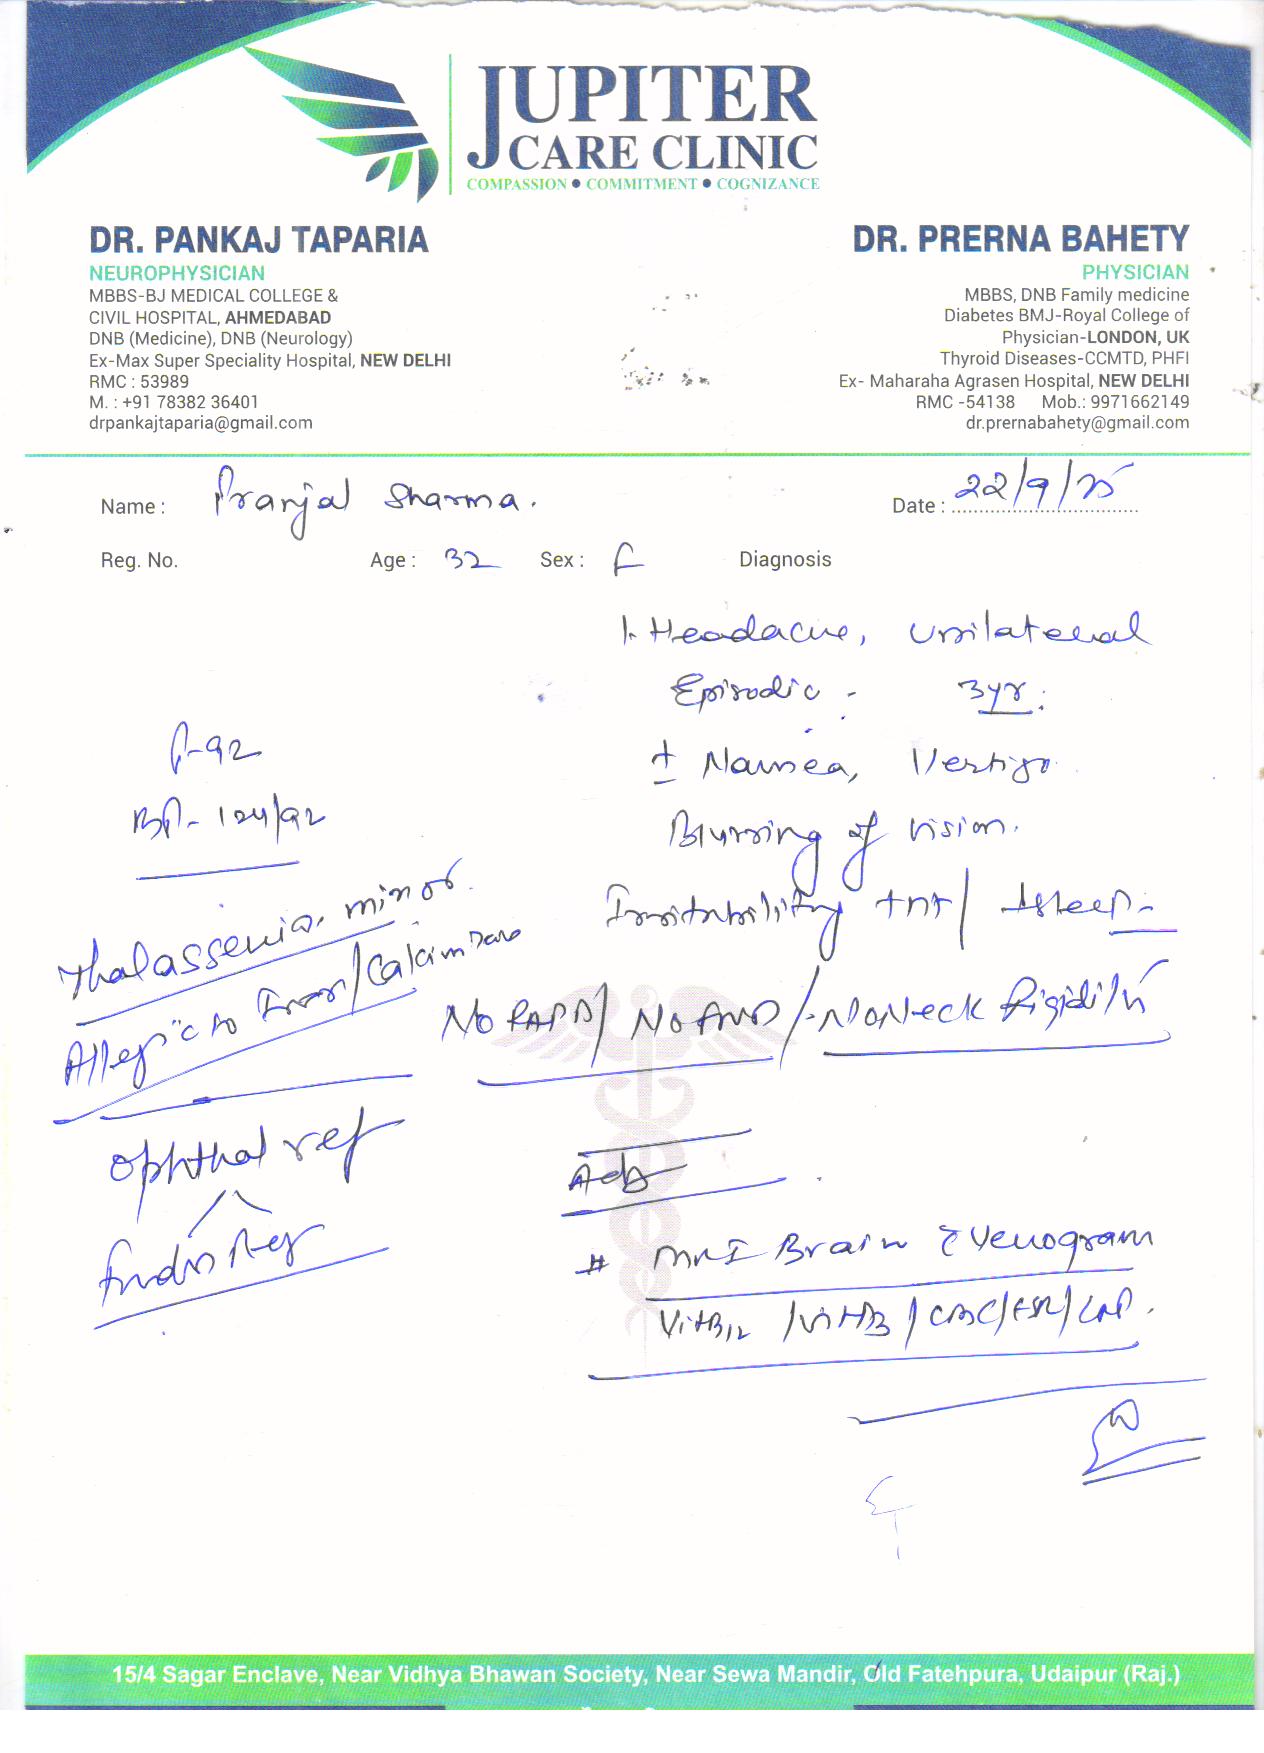 JUPITER
CARE CLINIC
COMPASSION • COMMITMENT • COGNIZANCE
DR. PANKAJ TAPARIA
NEUROPHYSICIAN
MBBS-BJ MEDICAL COLLEGE &
CIVIL HOSPITAL, AHMEDABAD
DNB (Medicine), DNB (Neurology)
Ex-Max Super Speciality Hospital, NEW DELHI
RMC : 53989
M. : +91 78382 36401
drpankajtaparia@gmail.com
DR. PRERNA BAHETY
PHYSICIAN
MBBS, DNB Family medicine
Diabetes BMJ-Royal College of
Physician-LONDON, UK
Thyroid Diseases-CCMTD, PHFI
Ex- Maharaha Agrasen Hospital, NEW DELHI
RMC -54138 Mob.: 9971662149
dr.prernabahety@gmail.com
Name : Pranjal Sharma. Date : 22/9/25
Reg. No. Age : 32 Sex : F Diagnosis
1. Headache, Unilateral
Episodic - 3yr.
± Nausea, Vertigo
Blurring of vision.
Irritability / Sleep
P-92
BP- 124/92
Thalassemia minor
Allergic to Iron/Calcium
No RAPD/ No / No Neck Rigidity
Ophthal ref
Endo Ref
Adv
# MRI Brain c̄ Venogram
Vit B12 / Vit D3 / CBC/ESR/CRP.
15/4 Sagar Enclave, Near Vidhya Bhawan Society, Near Sewa Mandir, Old Fatehpura, Udaipur (Raj.)